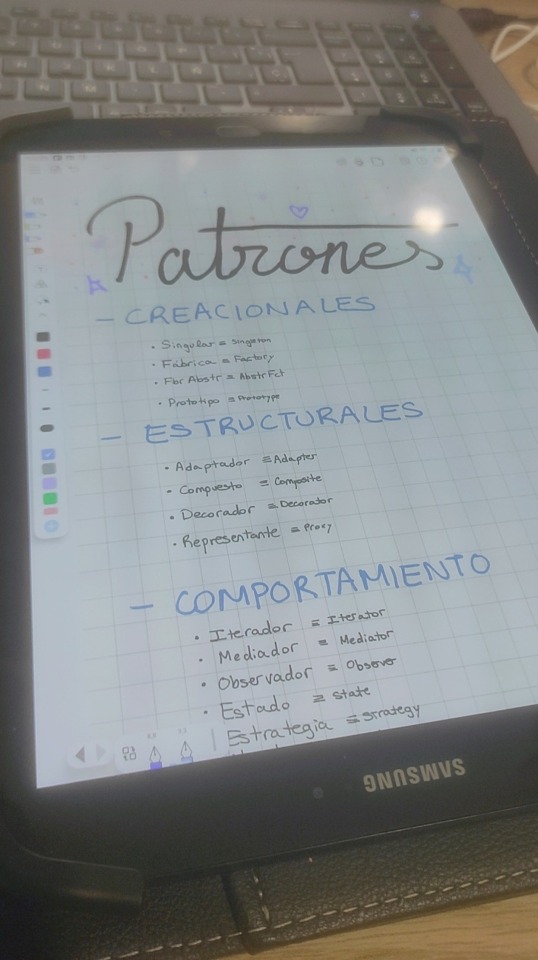 Patrones
- CREACIONALES
• Singular = Singleton
• Fábrica = Factory
• Fbr Abstr = Abstr Fct
• Prototipo = Prototype
- ESTRUCTURALES
• Adaptador = Adapter
• Compuesto = Composite
• Decorador = Decorator
• Representante = Proxy
- COMPORTAMIENTO
• Iterador = Iterator
• Mediador = Mediator
• Observador = Observer
• Estado = State
Estrategia = Strategy
SAMSUNG